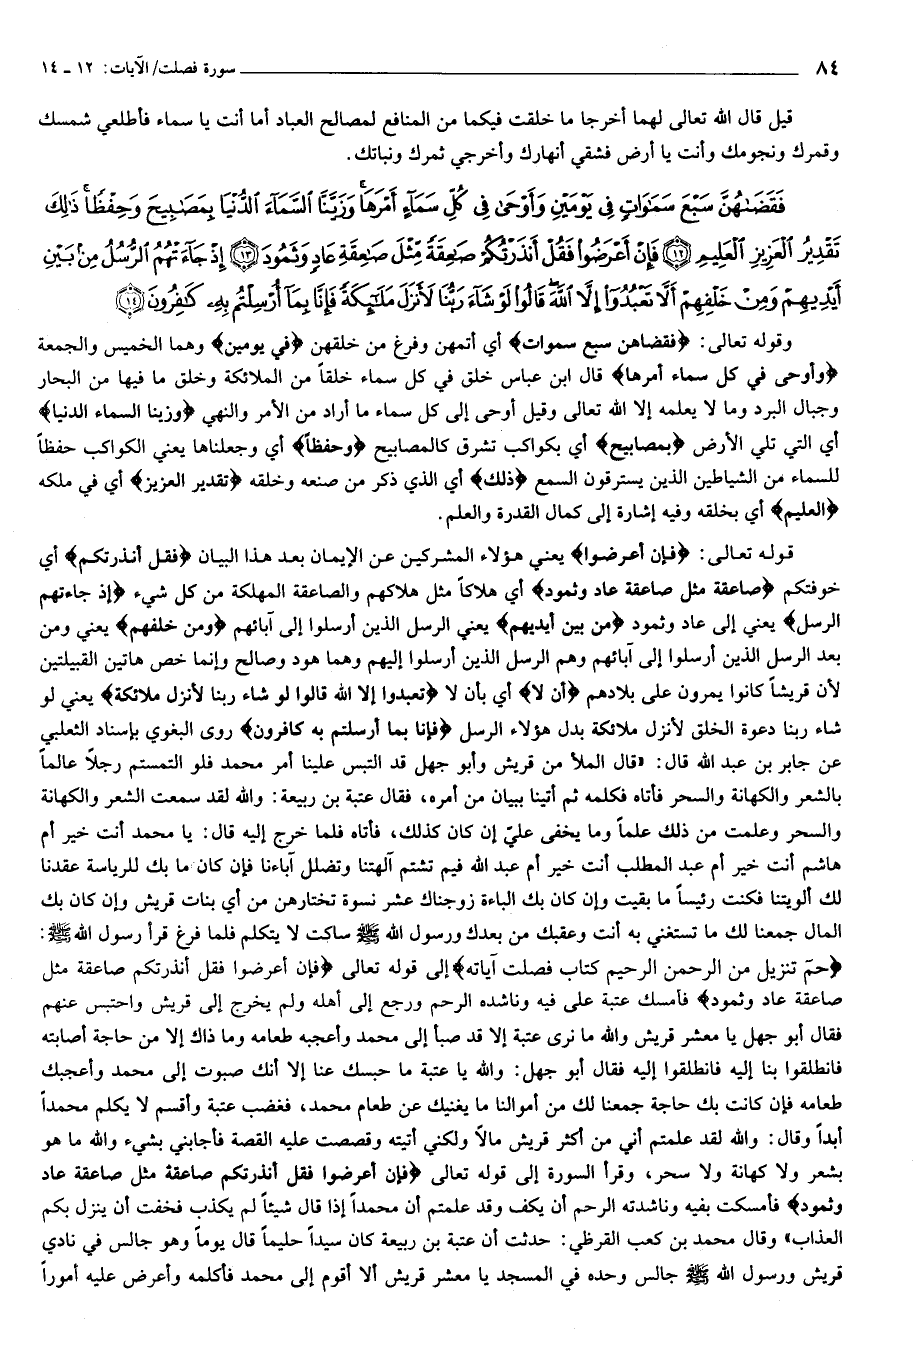 ٨٤ سورة فصلت/ الآيات: ١٢ ـ ١٤
قيل قال الله تعالى لهما أخرجا ما خلقت فيكما من المنافع لمصالح العباد أما أنت يا سماء فأطلعي شمسك
وقمرك ونجومك وأنت يا أرض فشقي أنهارك وأخرجي ثمرك ونباتك.
فَقَضَىٰهُنَّ سَبْعَ سَمَٰوَاتٍ فِى يَوْمَيْنِ وَأَوْحَىٰ فِى كُلِّ سَمَآءٍ أَمْرَهَا ۚ وَزَيَّنَّا ٱلسَّمَآءَ ٱلدُّنْيَا بِمَصَٰبِيحَ وَحِفْظًا ۚ ذَٰلِكَ
تَقْدِيرُ ٱلْعَزِيزِ ٱلْعَلِيمِ ﴿١٢﴾ فَإِنْ أَعْرَضُوا۟ فَقُلْ أَنذَرْتُكُمْ صَٰعِقَةً مِّثْلَ صَٰعِقَةِ عَادٍ وَثَمُودَ ﴿١٣﴾ إِذْ جَآءَتْهُمُ ٱلرُّسُلُ مِنۢ بَيْنِ
أَيْدِيهِمْ وَمِنْ خَلْفِهِمْ أَلَّا تَعْبُدُوٓا۟ إِلَّا ٱللَّهَ ۖ قَالُوا۟ لَوْ شَآءَ رَبُّنَا لَأَنزَلَ مَلَٰٓئِكَةً فَإِنَّا بِمَآ أُرْسِلْتُم بِهِۦ كَٰفِرُونَ ﴿١٤﴾
وقوله تعالى: ﴿فقضاهن سبع سموات﴾ أي أتمهن وفرغ من خلقهن ﴿في يومين﴾ وهما الخميس والجمعة
﴿وأوحى في كل سماء أمرها﴾ قال ابن عباس خلق في كل سماء خلقاً من الملائكة وخلق ما فيها من البحار
وجبال البرد وما لا يعلمه إلا الله تعالى وقيل أوحى إلى كل سماء ما أراد من الأمر والنهي ﴿وزينا السماء الدنيا﴾
أي التي تلي الأرض ﴿بمصابيح﴾ أي بكواكب تشرق كالمصابيح ﴿وحفظاً﴾ أي وجعلناها يعني الكواكب حفظاً
للسماء من الشياطين الذين يسترقون السمع ﴿ذلك﴾ أي الذي ذكر من صنعه وخلقه ﴿تقدير العزيز﴾ أي في ملكه
﴿العليم﴾ أي بخلقه وفيه إشارة إلى كمال القدرة والعلم.
قوله تعالى: ﴿فإن أعرضوا﴾ يعني هؤلاء المشركين عن الإيمان بعد هذا البيان ﴿فقل أنذرتكم﴾ أي
خوفتكم ﴿صاعقة مثل صاعقة عاد وثمود﴾ أي هلاكاً مثل هلاكهم والصاعقة المهلكة من كل شيء ﴿إذ جاءتهم
الرسل﴾ يعني إلى عاد وثمود ﴿من بين أيديهم﴾ يعني الرسل الذين أرسلوا إلى آبائهم ﴿ومن خلفهم﴾ يعني ومن
بعد الرسل الذين أرسلوا إلى آبائهم وهم الرسل الذين أرسلوا إليهم وهما هود وصالح وإنما خص هاتين القبيلتين
لأن قريشاً كانوا يمرون على بلادهم ﴿أن لا﴾ أي بأن لا ﴿تعبدوا إلا الله قالوا لو شاء ربنا لأنزل ملائكة﴾ يعني لو
شاء ربنا دعوة الخلق لأنزل ملائكة بدل هؤلاء الرسل ﴿فإنا بما أرسلتم به كافرون﴾ روى البغوي بإسناد الثعلبي
عن جابر بن عبد الله قال: «قال الملأ من قريش وأبو جهل قد التبس علينا أمر محمد فلو التمستم رجلاً عالماً
بالشعر والكهانة والسحر فأتاه فكلمه ثم أتينا ببيان من أمره، فقال عتبة بن ربيعة: والله لقد سمعت الشعر والكهانة
والسحر وعلمت من ذلك علماً وما يخفى عليّ إن كان كذلك، فأتاه فلما خرج إليه قال: يا محمد أنت خير أم
هاشم أنت خير أم عبد المطلب أنت خير أم عبد الله فيم تشتم آلهتنا وتضلل آباءنا فإن كان ما بك للرياسة عقدنا
لك ألويتنا فكنت رئيساً ما بقيت وإن كان بك الباءة زوجناك عشر نسوة تختارهن من أي بنات قريش وإن كان بك
المال جمعنا لك ما تستغني به أنت وعقبك من بعدك ورسول الله ﷺ ساكت لا يتكلم فلما فرغ قرأ رسول الله ﷺ:
﴿حمّ تنزيل من الرحمن الرحيم كتاب فصلت آياته﴾ إلى قوله تعالى ﴿فإن أعرضوا فقل أنذرتكم صاعقة مثل
صاعقة عاد وثمود﴾ فأمسك عتبة على فيه وناشده الرحم ورجع إلى أهله ولم يخرج إلى قريش واحتبس عنهم
فقال أبو جهل يا معشر قريش والله ما نرى عتبة إلا قد صبأ إلى محمد وأعجبه طعامه وما ذاك إلا من حاجة أصابته
فانطلقوا بنا إليه فانطلقوا إليه فقال أبو جهل: والله يا عتبة ما حبسك عنا إلا أنك صبوت إلى محمد وأعجبك
طعامه فإن كانت بك حاجة جمعنا لك من أموالنا ما يغنيك عن طعام محمد، فغضب عتبة وأقسم لا يكلم محمداً
أبداً وقال: والله لقد علمتم أني من أكثر قريش مالاً ولكني أتيته وقصصت عليه القصة فأجابني بشيء والله ما هو
بشعر ولا كهانة ولا سحر، وقرأ السورة إلى قوله تعالى ﴿فإن أعرضوا فقل أنذرتكم صاعقة مثل صاعقة عاد
وثمود﴾ فأمسكت بفيه وناشدته الرحم أن يكف وقد علمتم أن محمداً إذا قال شيئاً لم يكذب فخفت أن ينزل بكم
العذاب» وقال محمد بن كعب القرظي: حدثت أن عتبة بن ربيعة كان سيداً حليماً قال يوماً وهو جالس في نادي
قريش ورسول الله ﷺ جالس وحده في المسجد يا معشر قريش ألا أقوم إلى محمد فأكلمه وأعرض عليه أموراً